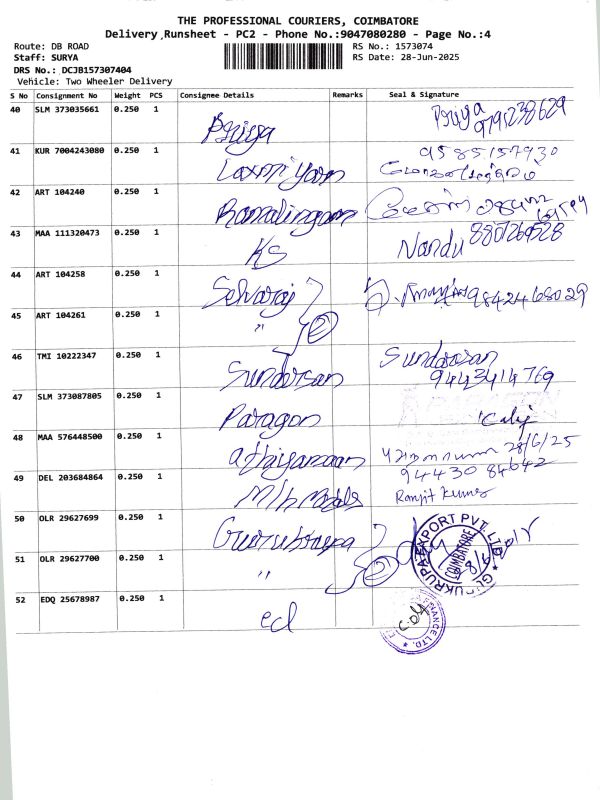 THE PROFESSIONAL COURIERS, COIMBATORE
Delivery Runsheet - PC2 - Phone No.:9047080280 - Page No.:4
Route: DB ROAD
RS No.: 1573074
Staff: SURYA
RS Date: 28-Jun-2025
DRS No.: DCJB157307404
Vehicle: Two Wheeler Delivery
S No Consignment No Weight PCS Consignee Details Remarks Seal & Signature
40 SLM 373035661 0.250 1 Priya Priya 9791238629
41 KUR 7004243080 0.250 1 Laxmi Yarn 9585157930
42 ART 104240 0.250 1 Ramalingam
43 MAA 111320473 0.250 1 KS Nandu
44 ART 104258 0.250 1 Selvaraj 9842468029
45 ART 104261 0.250 1 " 2
46 TMI 10222347 0.250 1 Sundarsan Sundarasan
9443414769
47 SLM 373087805 0.250 1 Paragon
48 MAA 576448500 0.250 1 athiyamaan 28/6/25
49 DEL 203684864 0.250 1 94430 84642
Ranjit Kumar
50 OLR 29627699 0.250 1 Gurukrupa
GURUKRUPA EXPORT PVT. LTD
COIMBATORE
51 OLR 29627700 0.250 1 " 2
52 EDQ 25678987 0.250 1 ecl
FINANCE LTD.